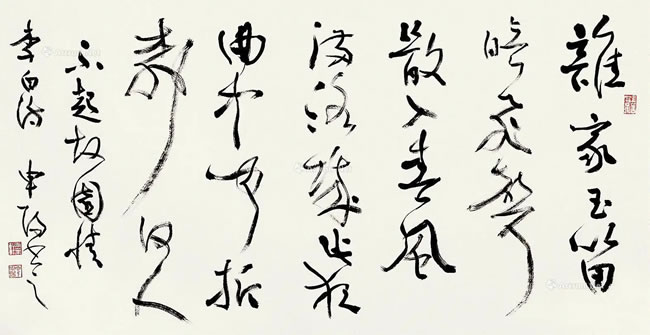 誰家玉笛
暗飛聲
散入春風
滿洛城此夜
曲中聞折
柳何人
不起故園情
李白詩 申 書之